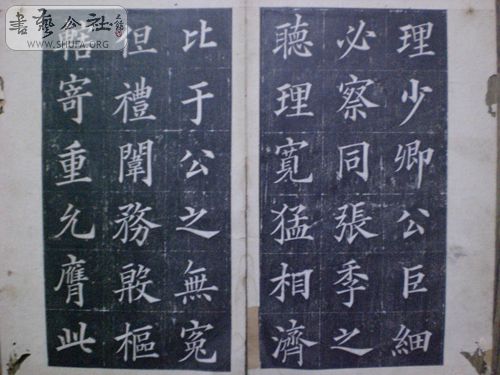 書藝公社
WWW.SHUFA.ORG
理少卿公巨細
必察同張季之
聽理寬猛相濟
比于公之無冤
但禮闈務殷樞
轄寄重允膺此